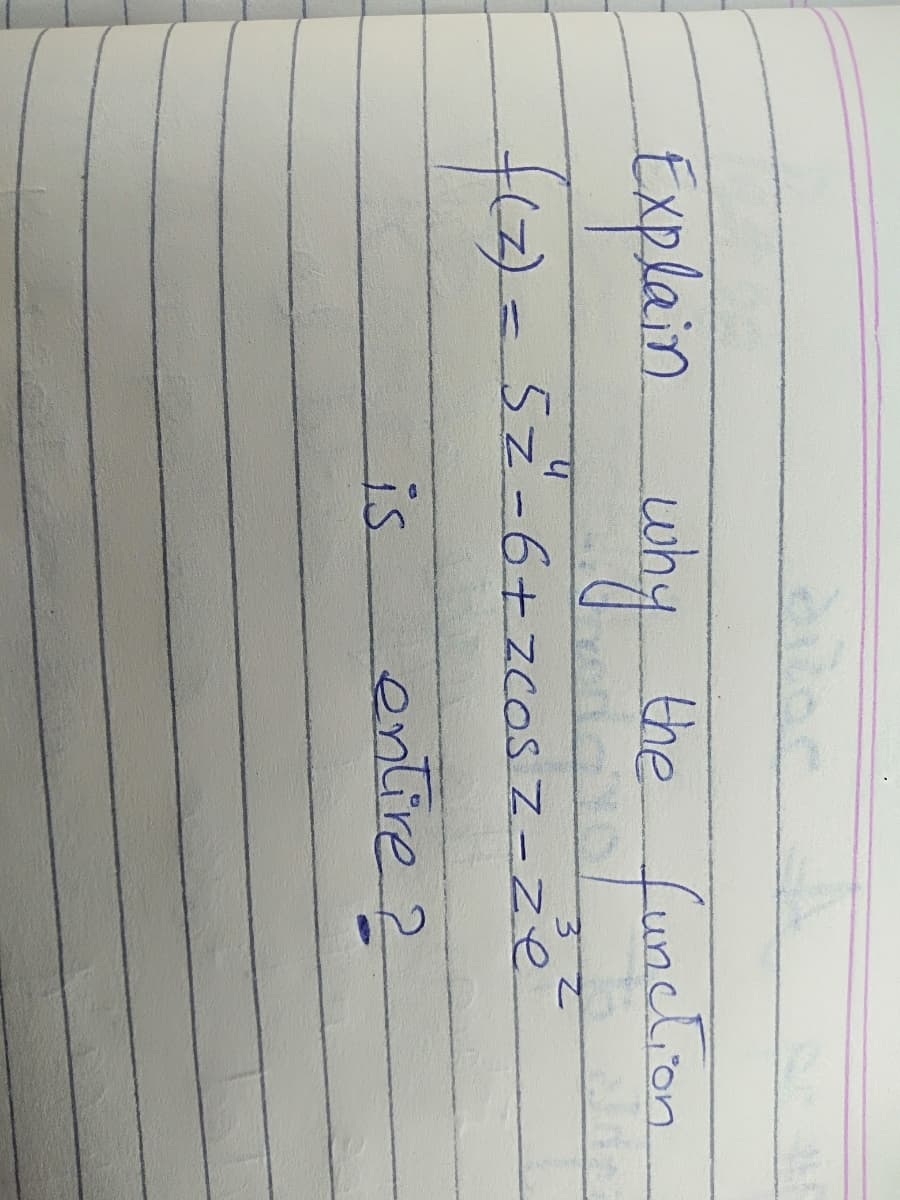 Explain why the function
f(z) = 5z⁴-6+zcos z-z³e^z
is entire?